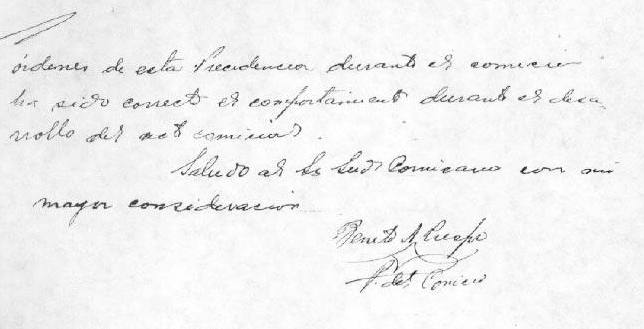 órdenes de esta Precidencia durante el comicio
ha sido correcto el comportamiento durante el desa
rrollo del acto comicial.
Saludo al Sr Comicano con mi
mayor consideracion
Benito A.
P. del Comicio